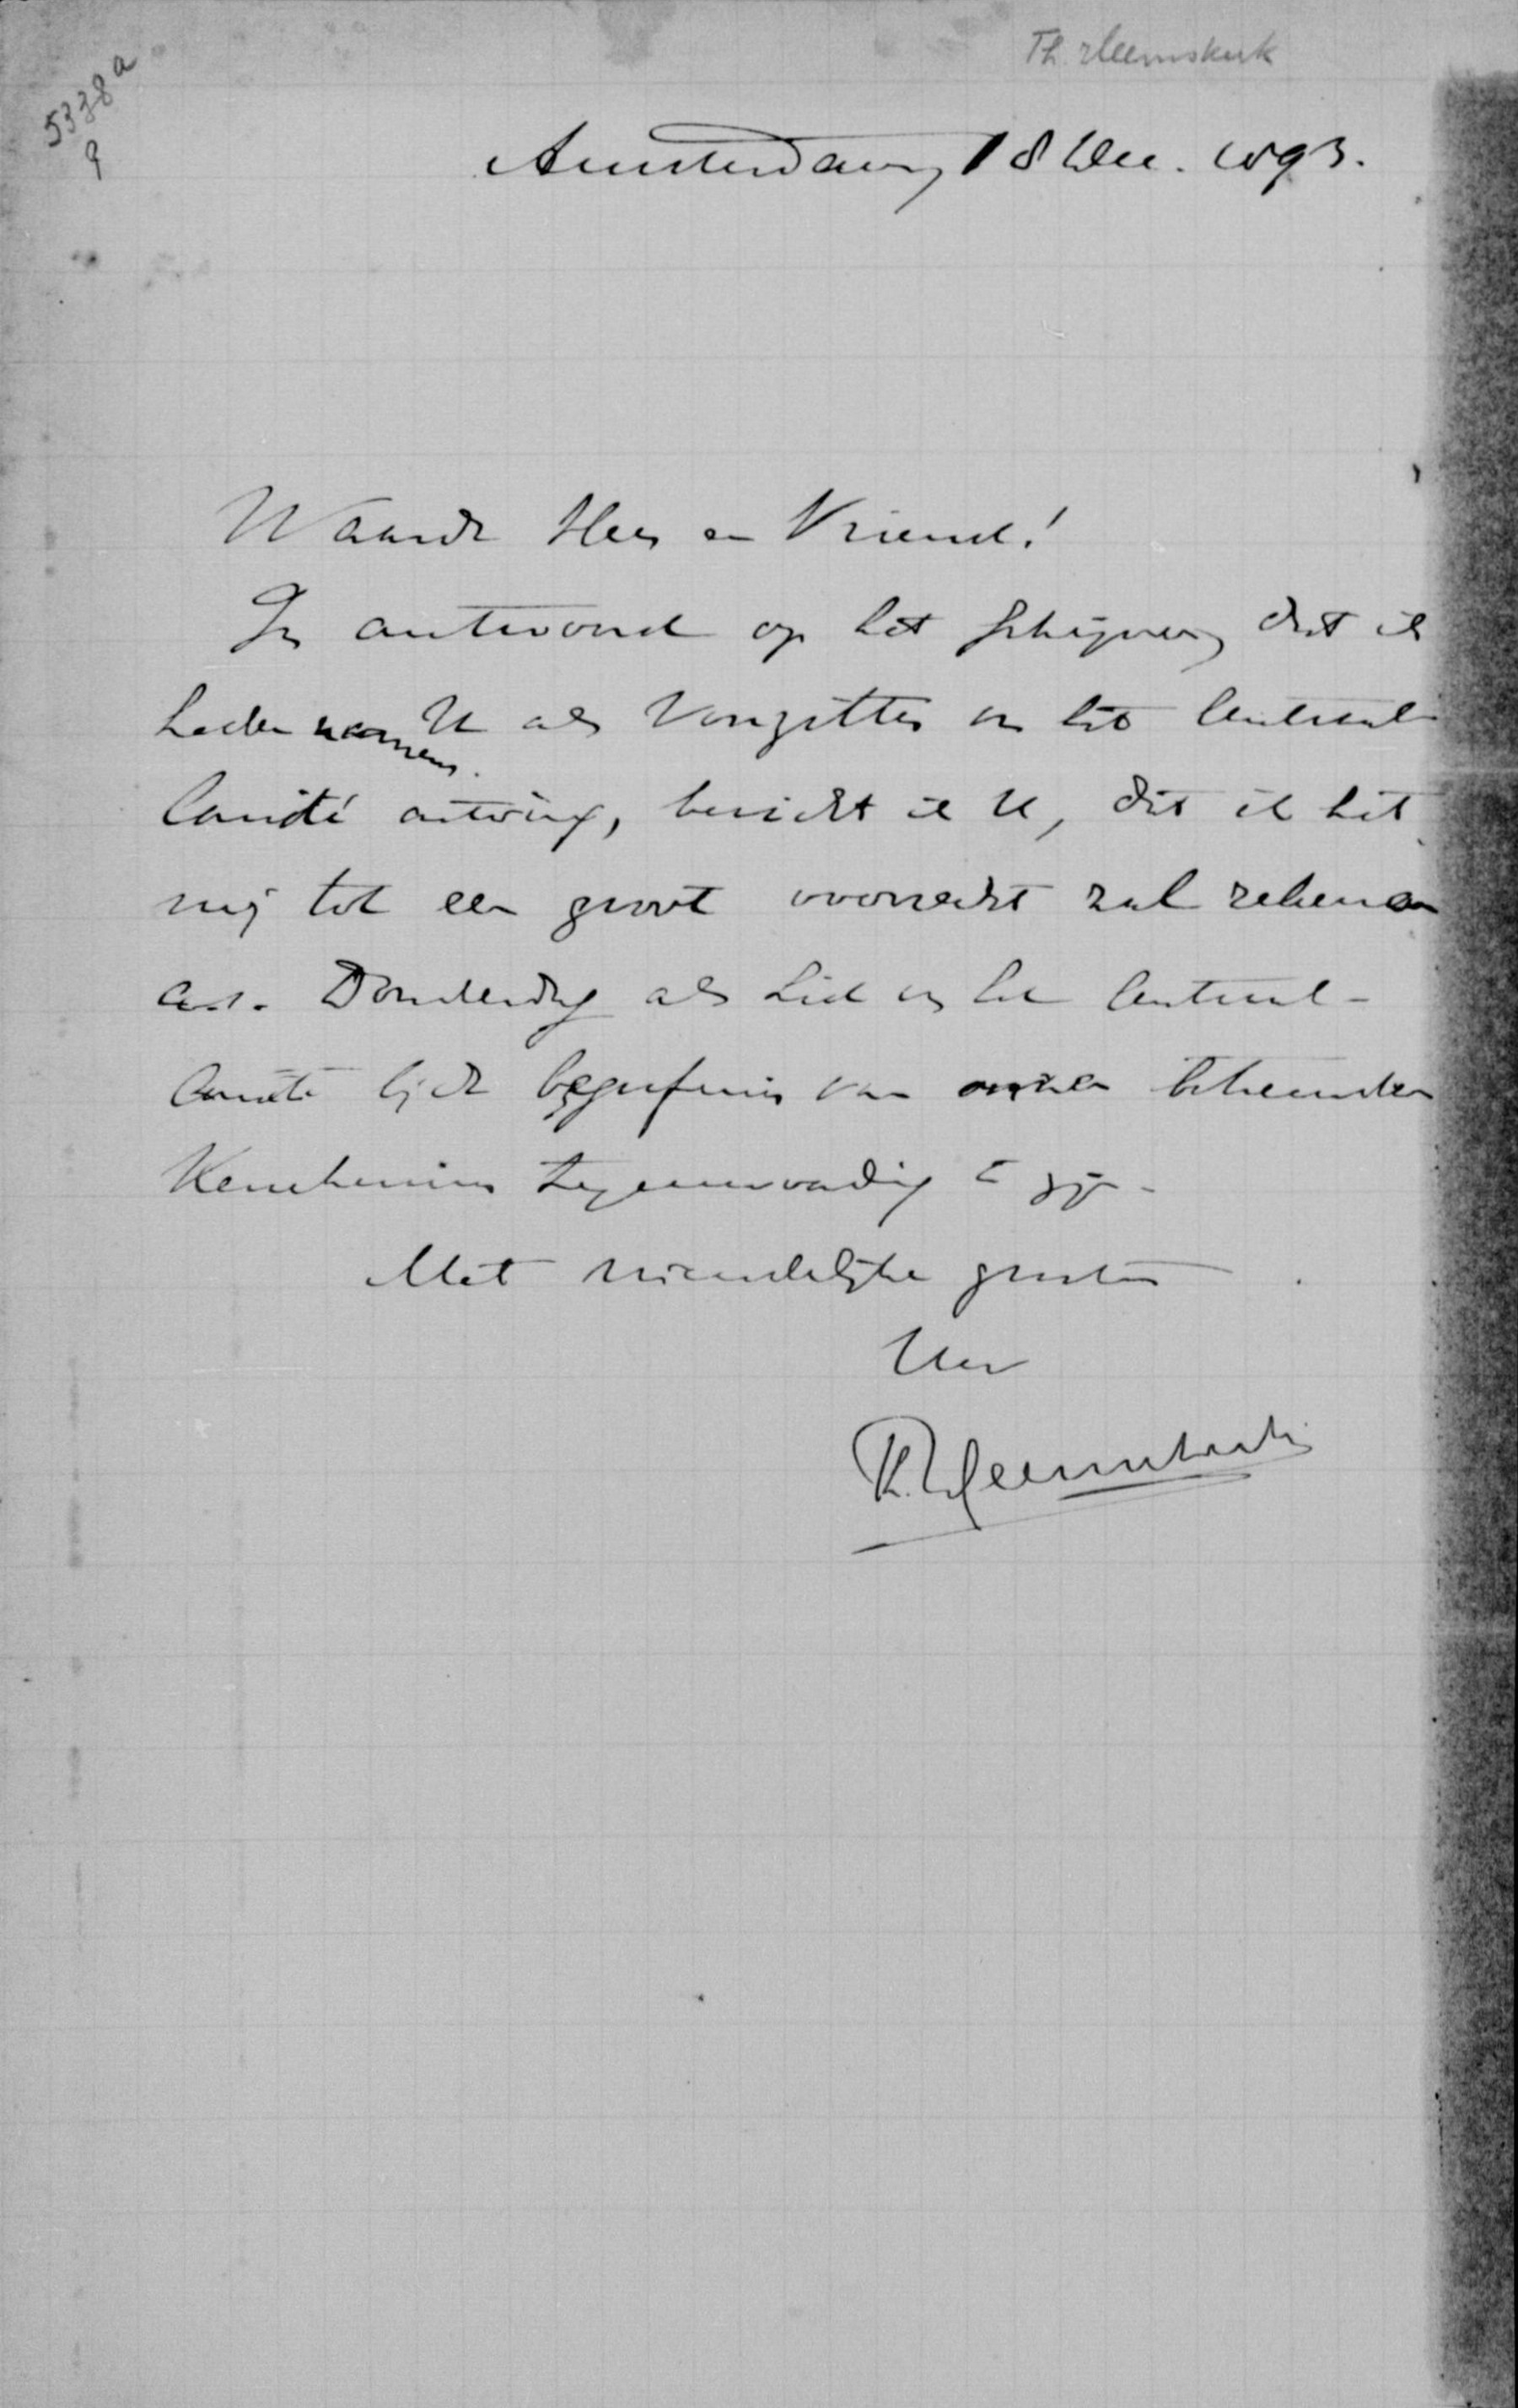 Th. Heemskerk
5338a
9
Amsterdam, 18 Dec. 1893.
Waarde Heer en Vriend!
In antwoord op het schrijven, dat ik
heden namens U als Voorzitter van het Centraal
Comité ontving, bericht ik U, dat ik het
mij tot een groot voorrecht zal rekenen
a.s. Donderdag als Lid van het Centraal-
Comité bij de begrafenis van onzen beheimden
Keuchenius tegenwoordig te zijn.
Met vriendelijke groeten
Uw
Th. Heemskerk